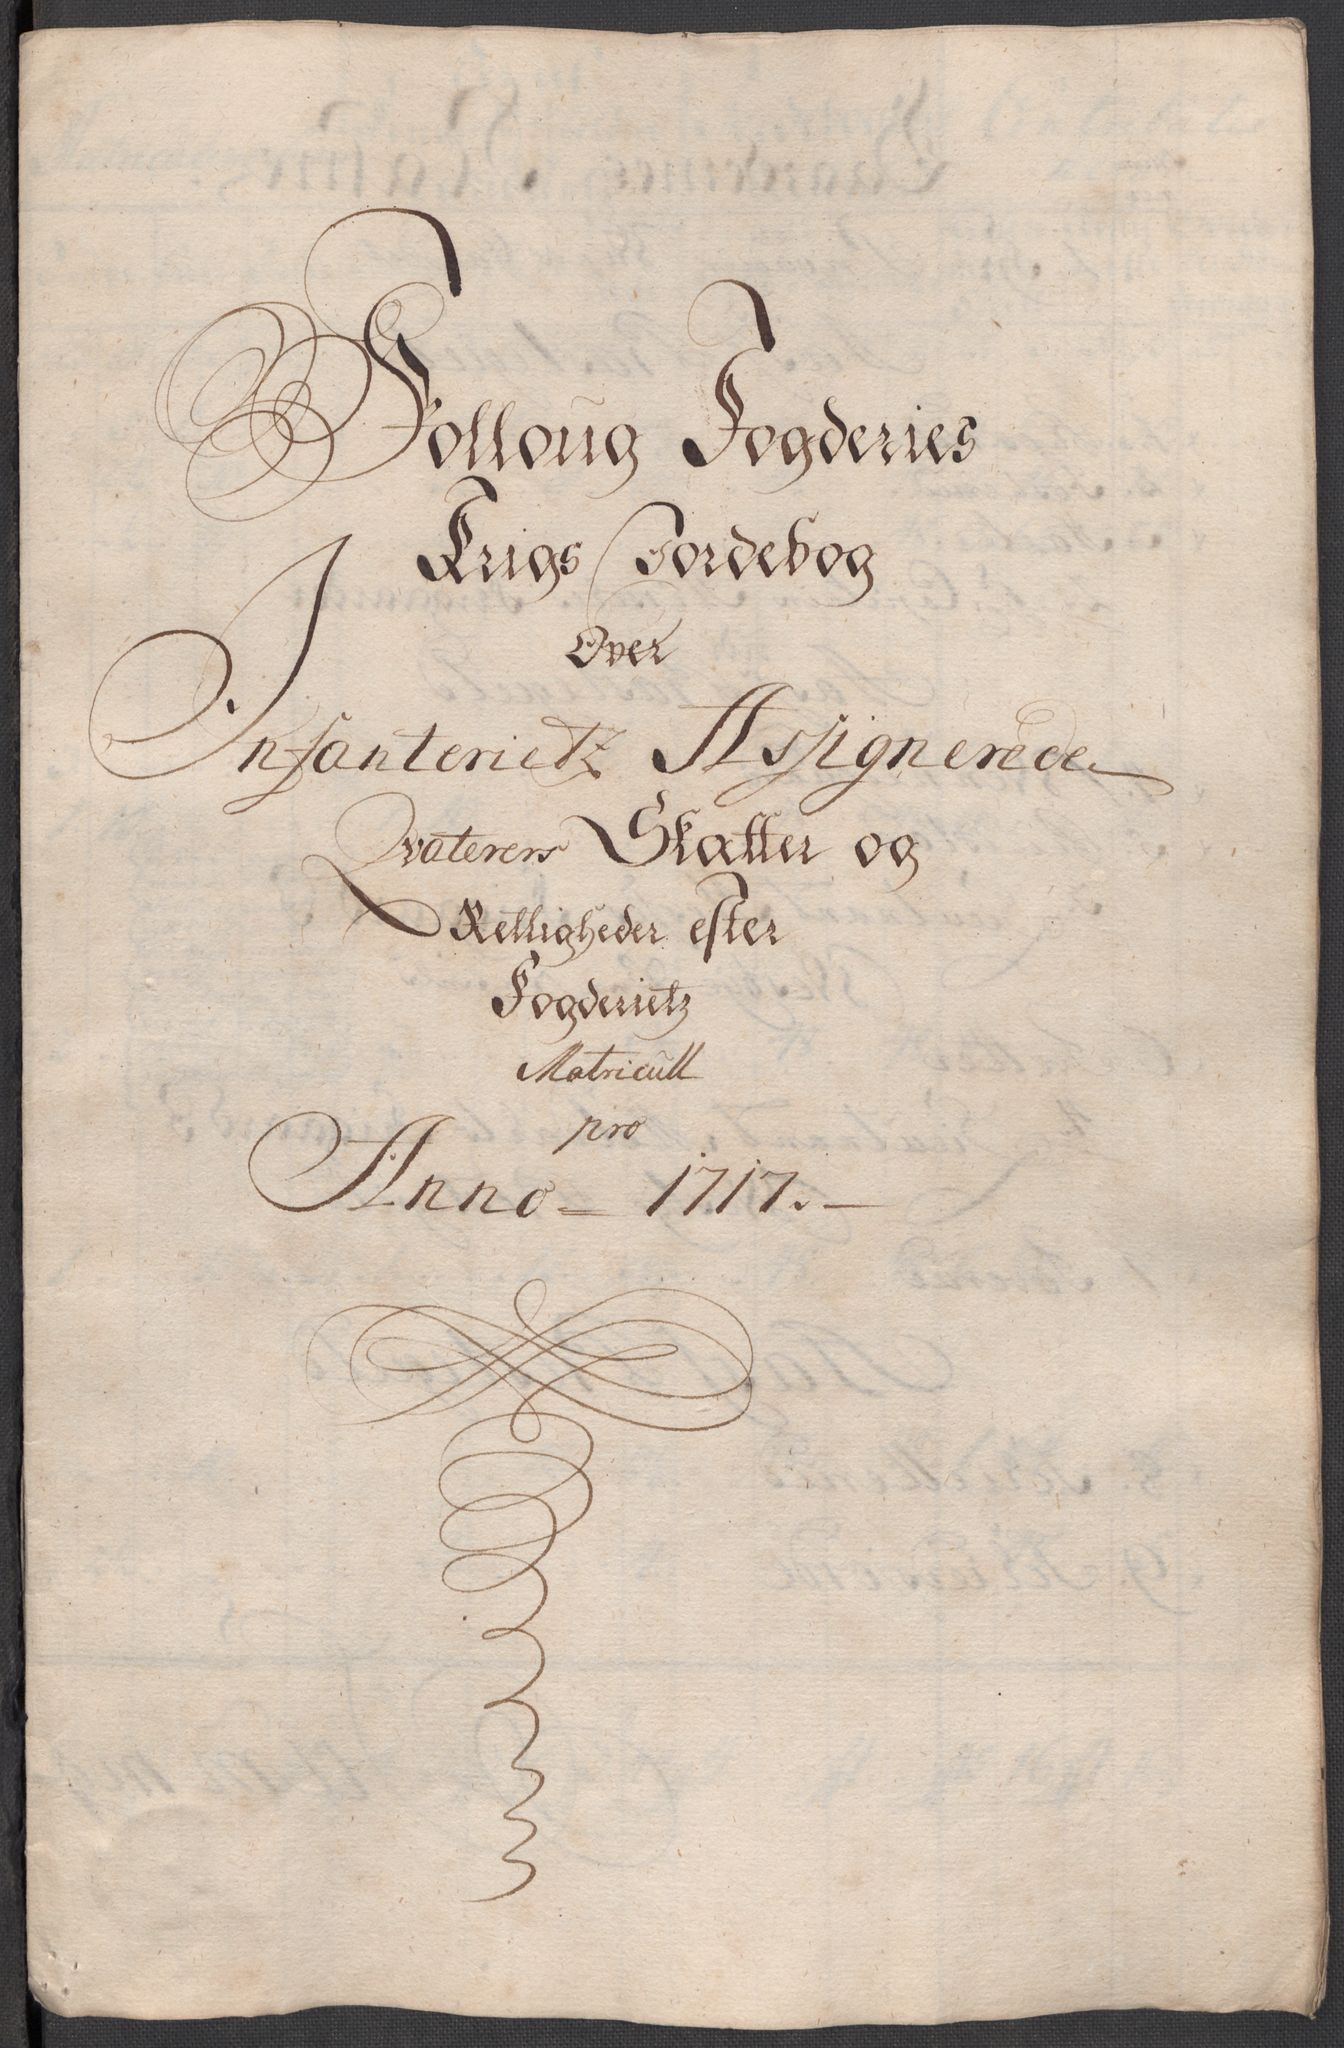 Folloug Fogderies
Krigs Jordebog
Over
Infanterietz Assignerede
Qvaterers Skatter og
Rettigheder efter
Fogderietz
Matricull
pro
Anno 1717.